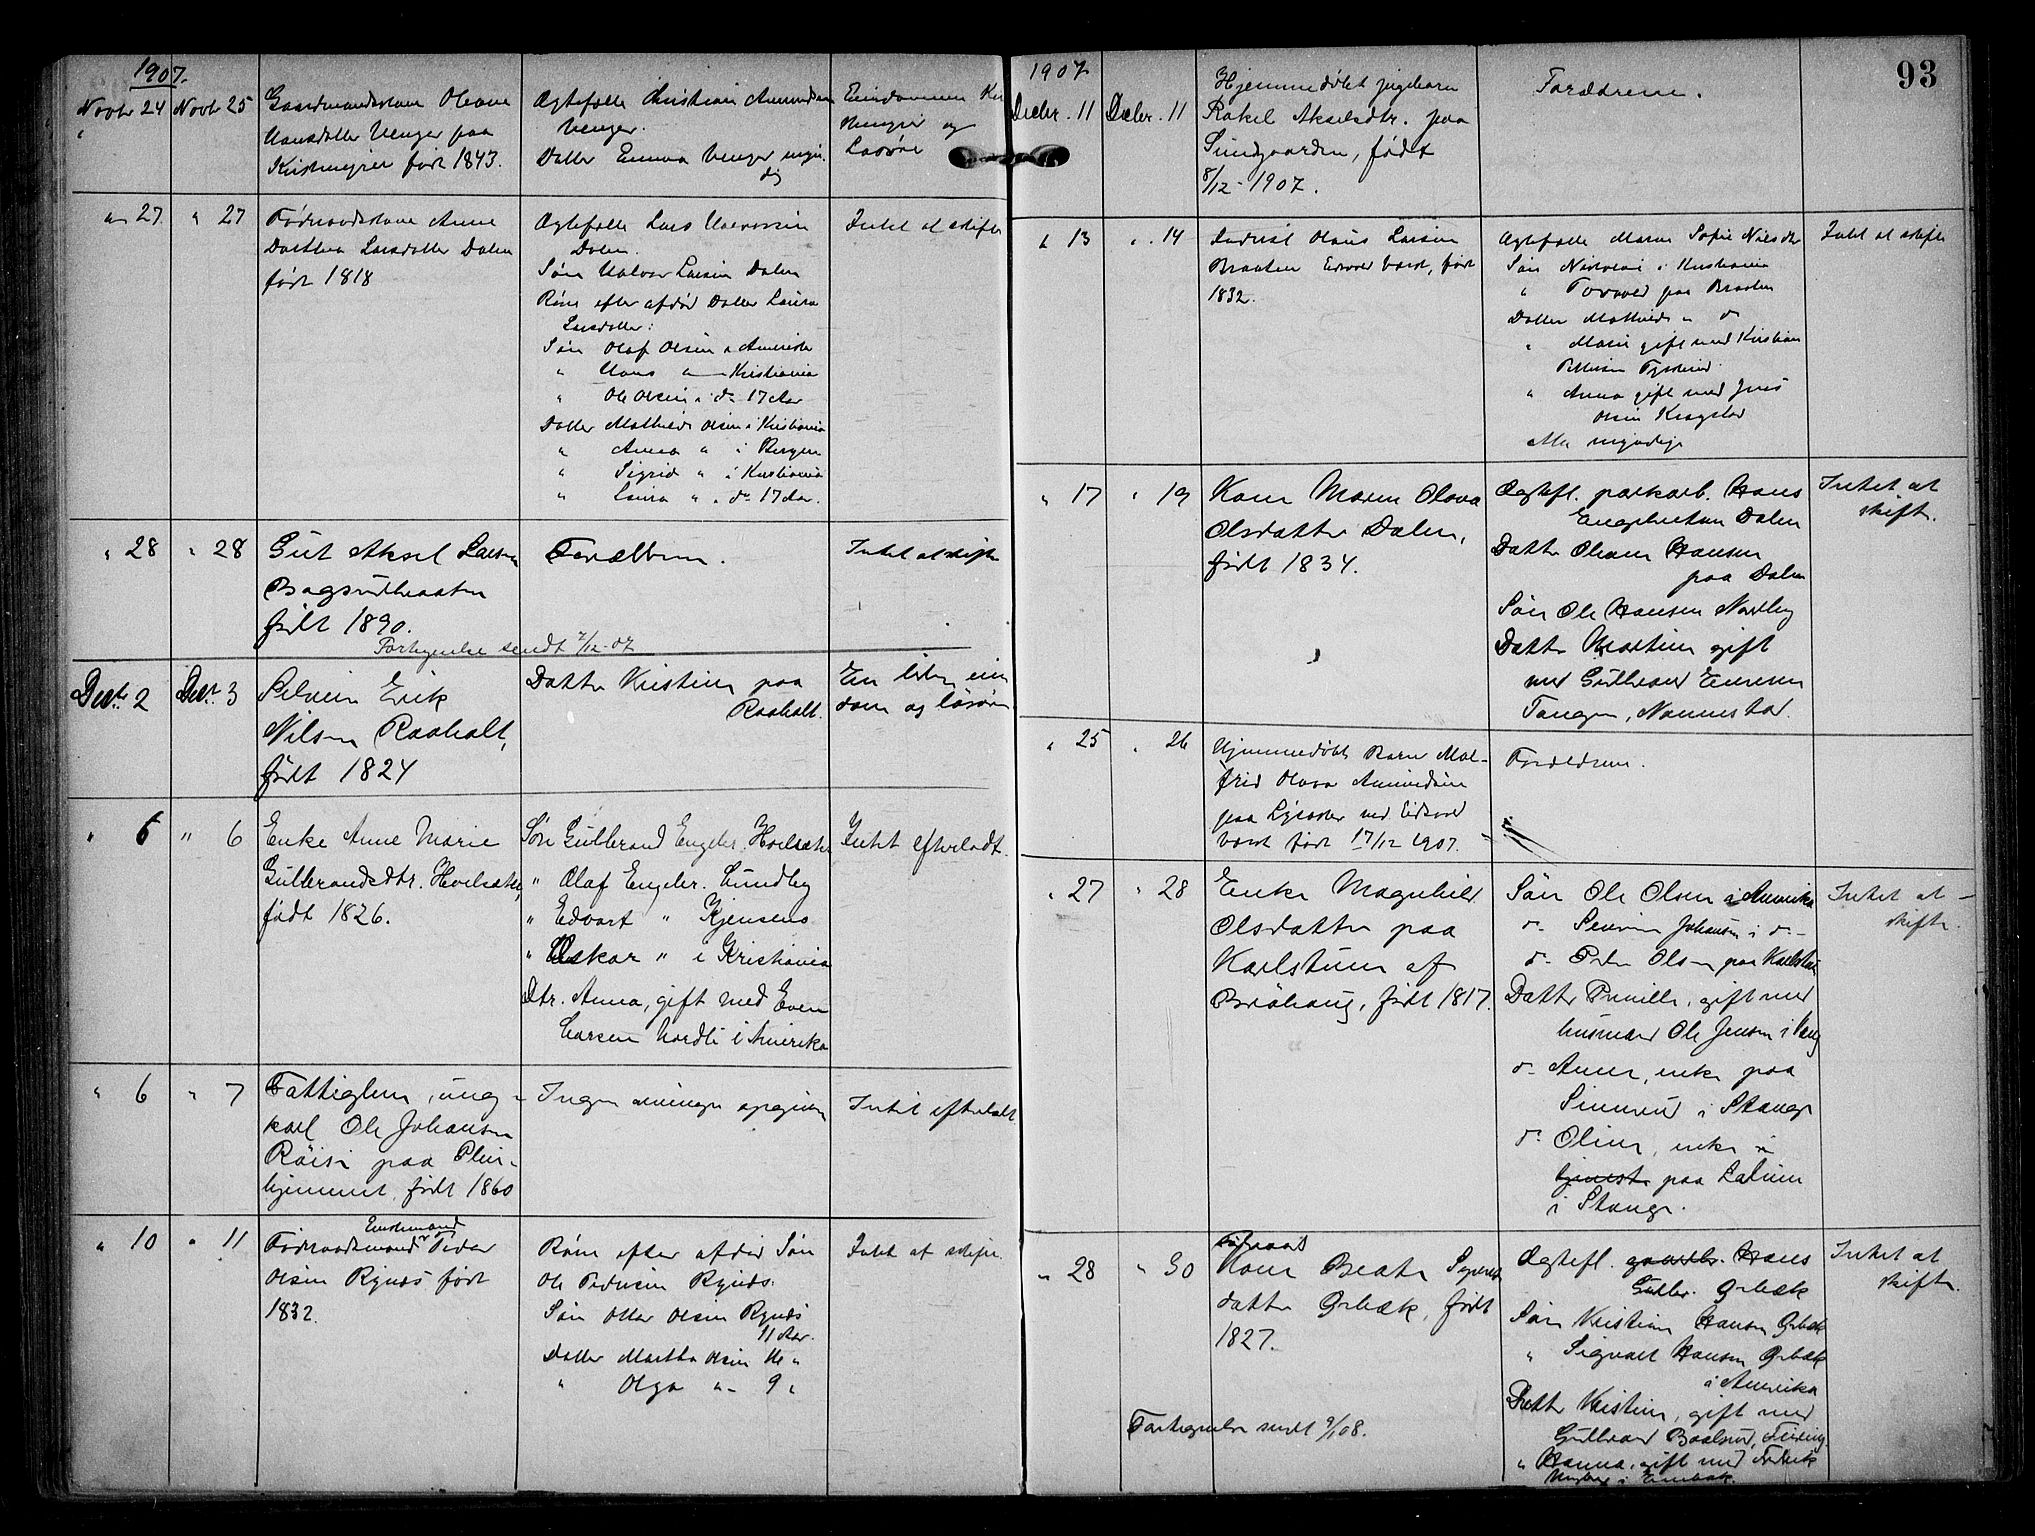 1907.
Novbr 24 Novbr 25 Gaardmandskone Oleane
Hansdatter Venger paa
født 1843.
Ægtefælle Kristian Amundsen
Venger.
Datter Emma Venger
Eiendommen
og
Løsøre
" 27 " 27 Føderaadskone Anne
Dorthea Larsdatter Dalen
født 1818
Ægtefælle Lars Halvorsen
Dalen.
Søn Halvor Larsen Dalen
Børn efter afdød Datter Laura
Larsdatter:
Søn Olaf Olsen i Amerika
" Hans " Kristiania
" Ole Olsen i do 17 Aar
Datter Mathilde Olsen i Kristiania
" Anna " i Bergen
" Sigrid " i Kristiania
" Laura " i do 17 Aar.
Intet at skifte
" 28 " 28 Gut Aksel Larsen
født 1890.
Forældrene.
Intet at skifte
Fortegnelse sendt 7/12-07
Decbr. 2 Decbr. 3 Erik
Nilsen Raaholt,
født 1824
Datter Kristine paa
Raaholt.
En liden eien
dom og løsøre
" 5 " 6 Enke Anne Marie
Gulbrandsdtr. Hvelsæter,
født 1826.
Søn Gulbrand Engebr. Hvelsæter
" Olaf Engebr. Lundby
" Edvart " Gjensens
" Oskar " i Kristiania
Dtr. Anna, gift med Even
Larsen Nordli i Amerika
Intet efterladt.
" 6 " 7 Fattiglem, ung-
karl Ole Johansen
Røise paa Pleie-
hjemmet, født 1860
Ingen arvinger opgivne
Intet efterladt
" 10 " 11 Enkemand
Føderaadsmand Peder
Olsen Rynds født
1832.
Børn efter afdød Søn
Ole Pedersen Rynds:
Søn Ottar Olsen Rynds
11 Aar.
Datter Martha Olsen
" Olga " 9 "
Intet at skifte.
1907
93
Decbr. 11 Decbr. 11 Hjemmedøbt Pigebarn
Rakel Akselsdtr. paa
Sundgaarden, født
8/12-1907.
Forældrene.
" 13 " 14 Inderst Olaus Larsen
Braaten Eidsvold Værk, født
1832.
Ægtefælle Maren Sofie Nilsdtr
Søn Nikolai i Kristiania
" Torvald paa Braaten
Datter Mathilde " do
" Marie gift med Kristian
" Anna gift med Jens
Olsen Kragstad
Alle myndige
Intet at skifte
" 17 " 19 Kone Maren Olava
Olsdatter Dalen,
født 1834.
Ægtefl. parkarb. Hans
Engebretsen Dalen
Datter Oleane Hansen
paa Dalen
Søn Ole Hansen Nordby
Datter Martine gift
med Gulbrand Evensen
Tangen, Nannestad.
Intet at
skifte.
" 25 " 26 Hjemmedøbt Barn Mal-
frid Olava Amundsen
paa ved Eidsvold
Værk født 17/12 1907.
Forældrene.
" 27 " 28 Enke Magnhild
Olsdatter paa
Karlstuen af
Bråhaug, født 1817.
Søn Ole Olsen i Amerika
do. Severin Johansen i do.
do. Peder Olsen paa Karlstuen
Datter Pernille, gift med
husmand Ole Jensen i Vang
do. Anne, enke paa
i Stange
do. Oline, enke i
tjeneste paa
i Stange.
Intet at
skifte.
" 28 " 30 Føderaads
Kone Beate Syverts
datter Ørbæk, født
1827.
Ægtefl. gaardbr. Hans
Gulbr. Ørbæk
Søn Kristian Hansen Ørbæk
" Sigvart Hansen Ørbæk
i Amerika
Datter Kristine, gift med
Gulbrand Baalsrud, Feiring.
" Hanna, gift med Fredrik
i Enebak.
Intet at
skifte.
Fortegnelse sendt 9/1 08.